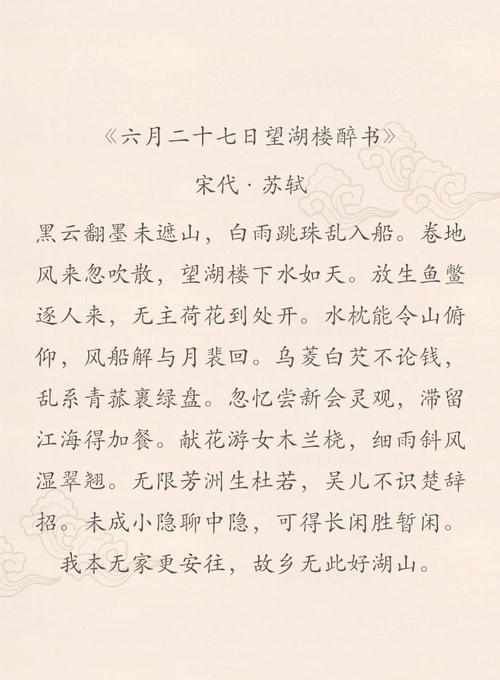 《六月二十七日望湖楼醉书》
宋代·苏轼
黑云翻墨未遮山，白雨跳珠乱入船。卷地
风来忽吹散，望湖楼下水如天。放生鱼鳖
逐人来，无主荷花到处开。水枕能令山俯
仰，风船解与月裴回。乌菱白芡不论钱，
乱系青菰裹绿盘。忽忆尝新会灵观，滞留
江海得加餐。献花游女木兰桡，细雨斜风
湿翠翘。无限芳洲生杜若，吴儿不识楚辞
招。未成小隐聊中隐，可得长闲胜暂闲。
我本无家更安往，故乡无此好湖山。